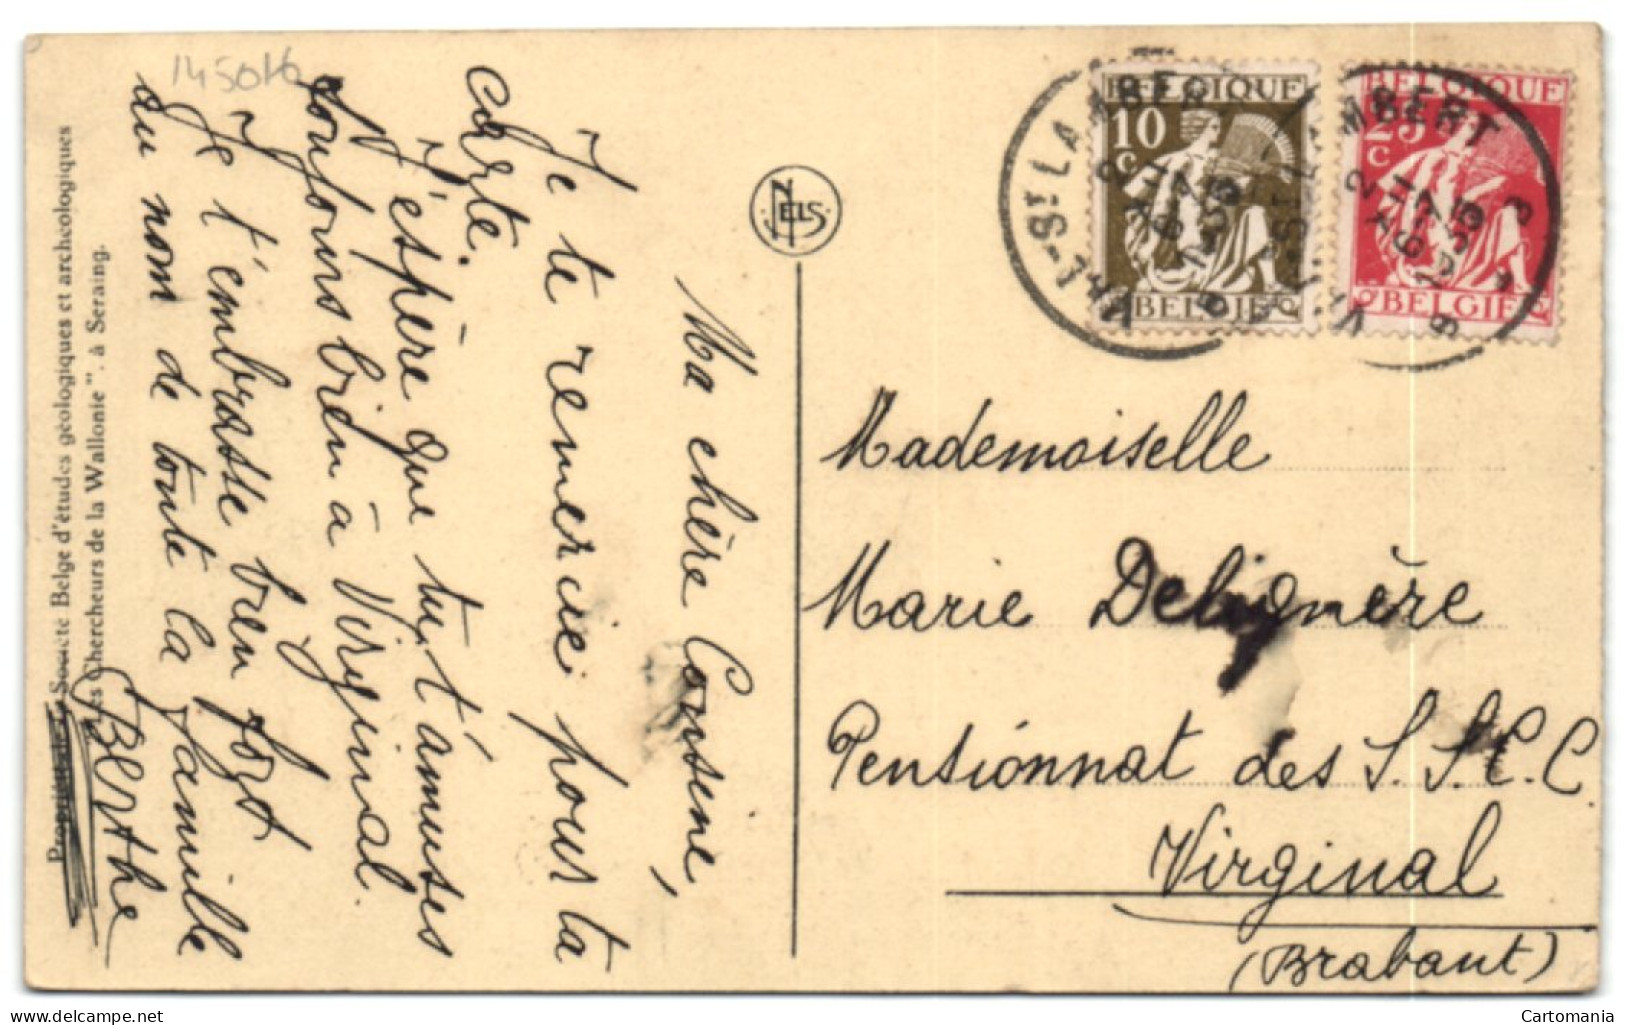 145016
Propriété de la Société Belge d'études géologiques et archeologiques
"Les Chercheurs de la Wallonie", à Seraing.
NELS
Ma chère Cousine,
Je te remercie pour ta
carte.
J'espère que tu t'amuses
toujours bien à Virginal
Je t'embrasse bien fort
au nom de toute la famille
Berthe
BELGIQUE
10
c
BELGIE
BELGIQUE
25
c
BELGIE
VAL-ST LAMBERT
Mademoiselle
Marie Delignère
Pensionnat des S.S.C.C.
Virginal
(Brabant)
Cartomania